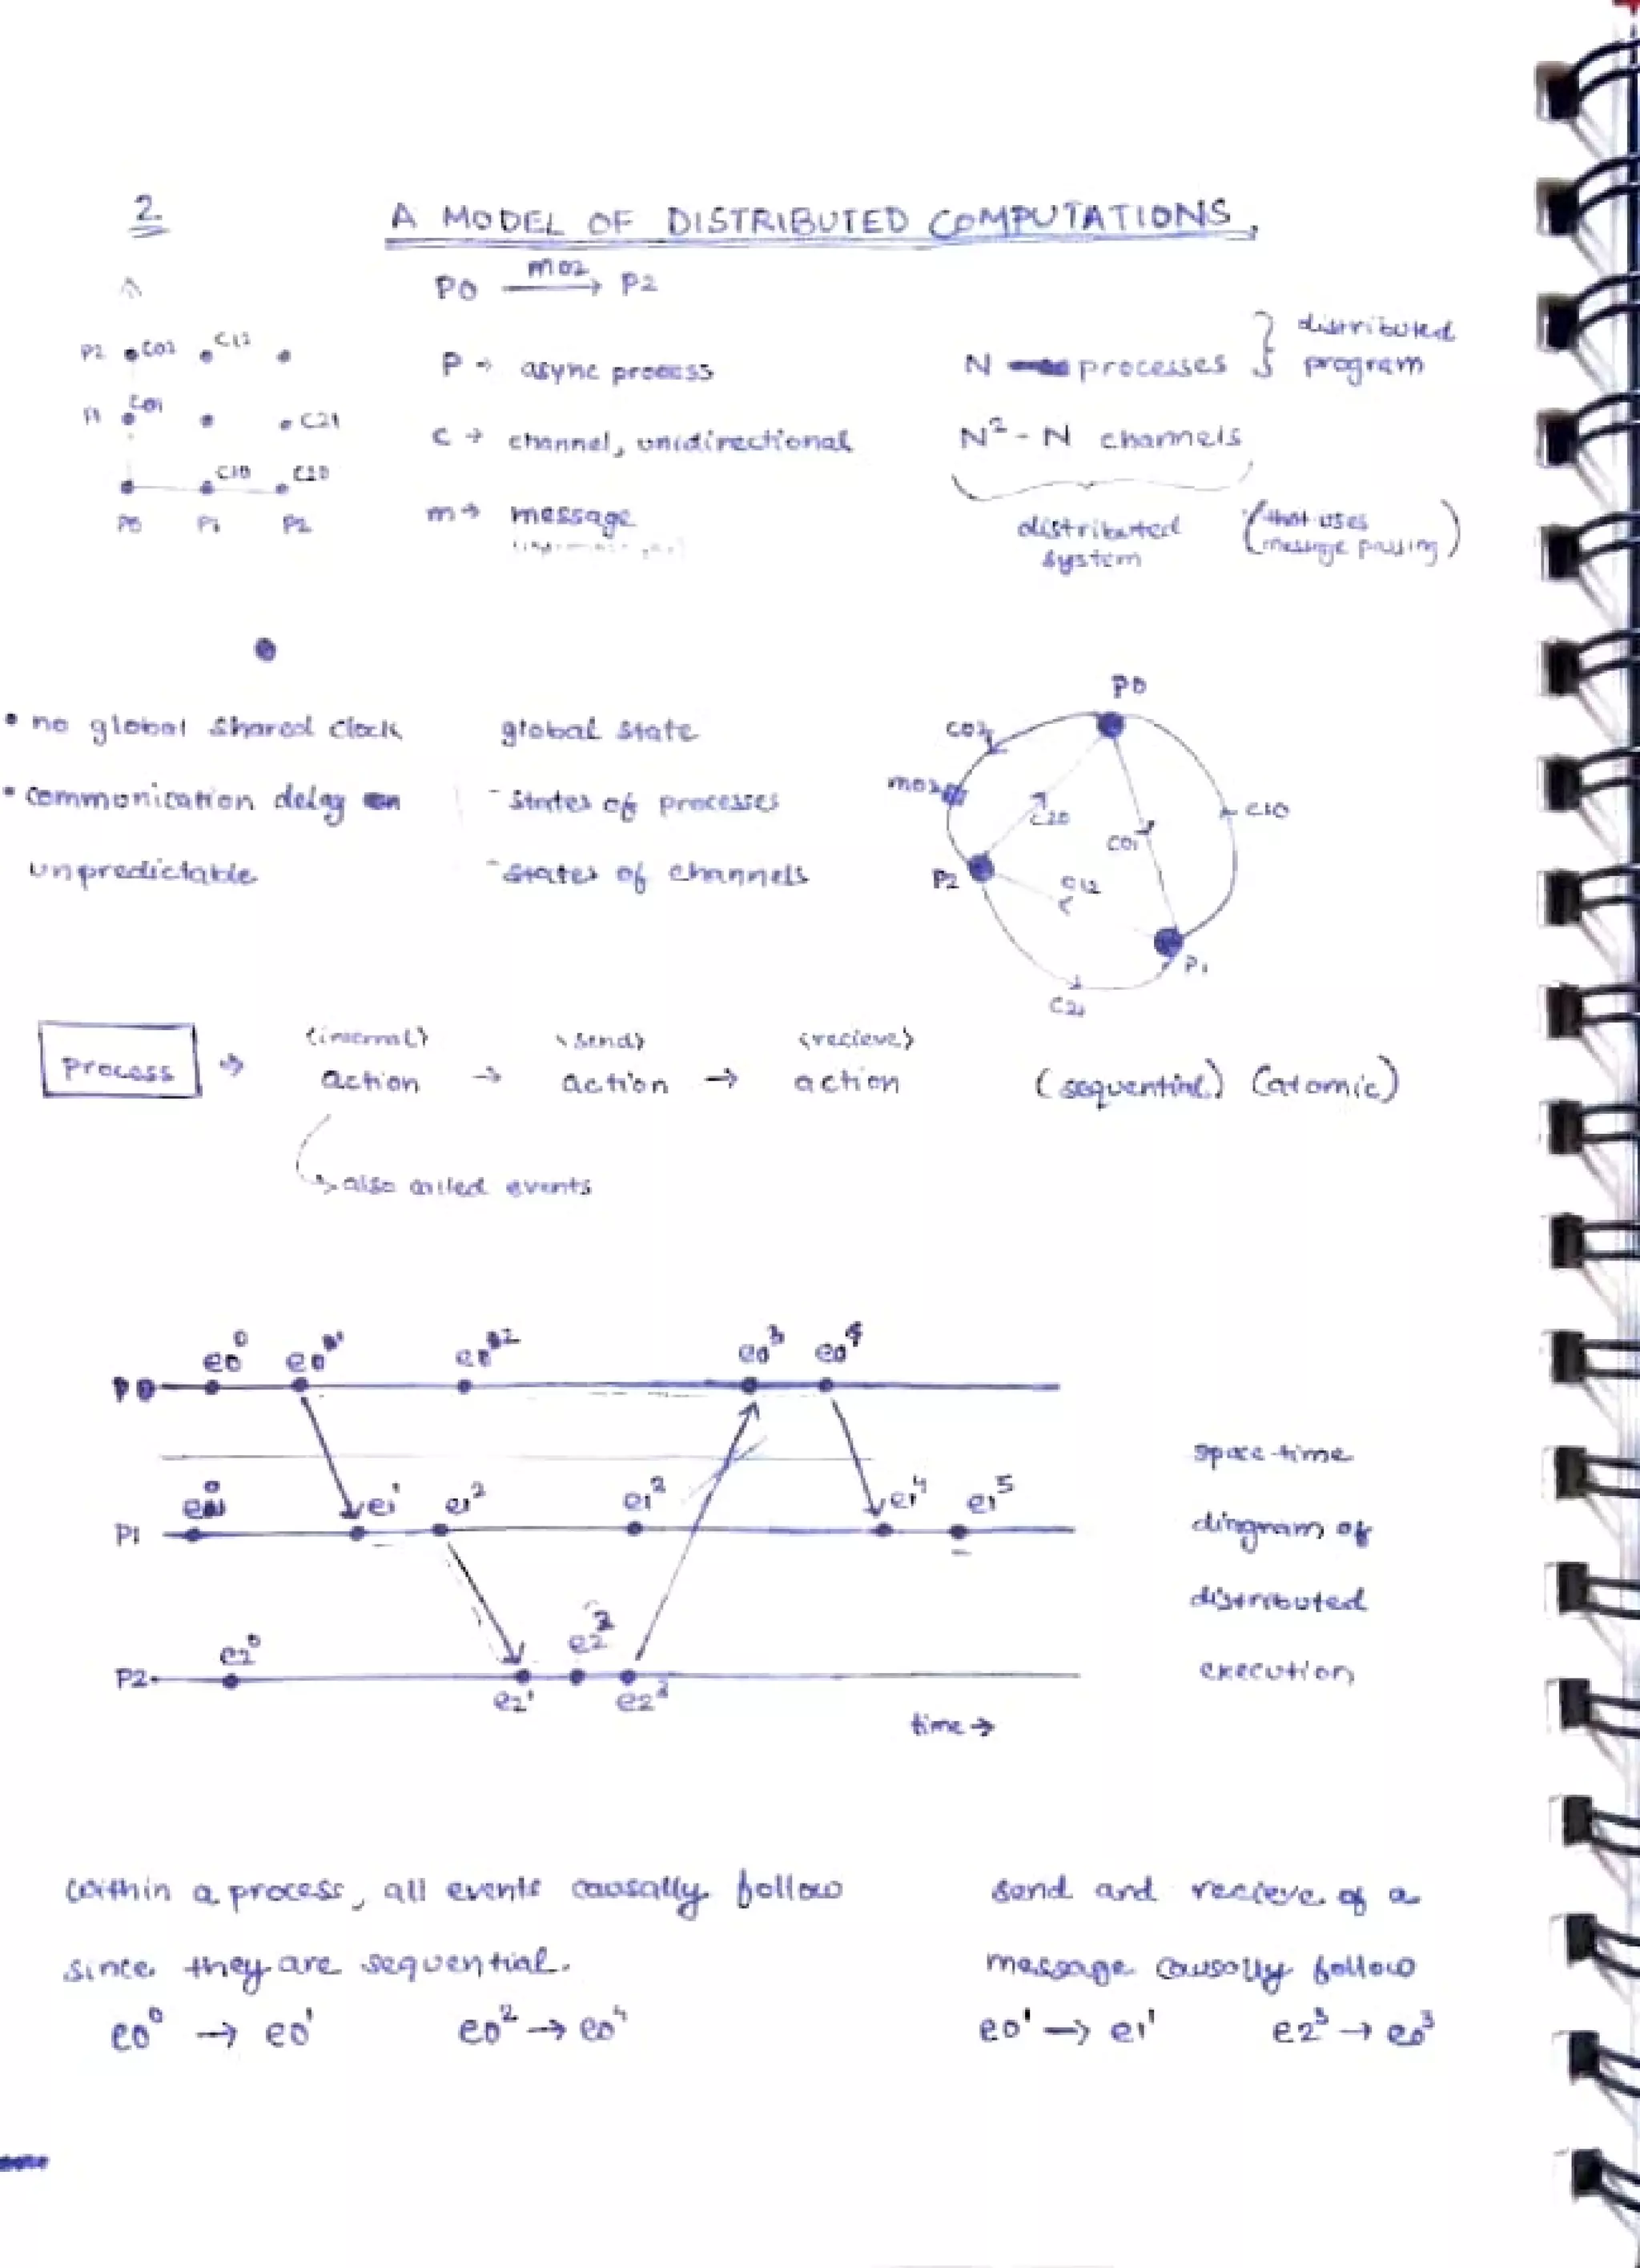 2
A MODEL OF DISTRIBUTED COMPUTATIONS.
P0 m02 → P2
P2 C02 C12
P1 C01 C21
C10 C20
P0 P1 P2
P → async process
C → channel, unidirectional
m → message
N processes } distributed program
N² - N channels
distributed system (that uses message passing)
• no global shared clock
• communication delay
unpredictable
global state
- states of processes
- states of channels
P0
C02
m02
C20
C01
C10
P2
C12
P1
C21
Process → (internal) action → (send) action → (recieve) action (sequential) (atomic)
also called events
e0⁰ e0¹ e0² e0³ e0⁴
P0
e1¹ e1² e1² e1⁴ e1⁵
P1
e2⁰ e2²
P2
e2¹ e2³
time →
space-time
diagram of
distributed
execution
within a process, all events causally follow
since they are sequential.
e0⁰ → e0¹ e0² → e0⁴
send and recieve of a
message causally follow
e0¹ → e1¹ e2³ → e0³